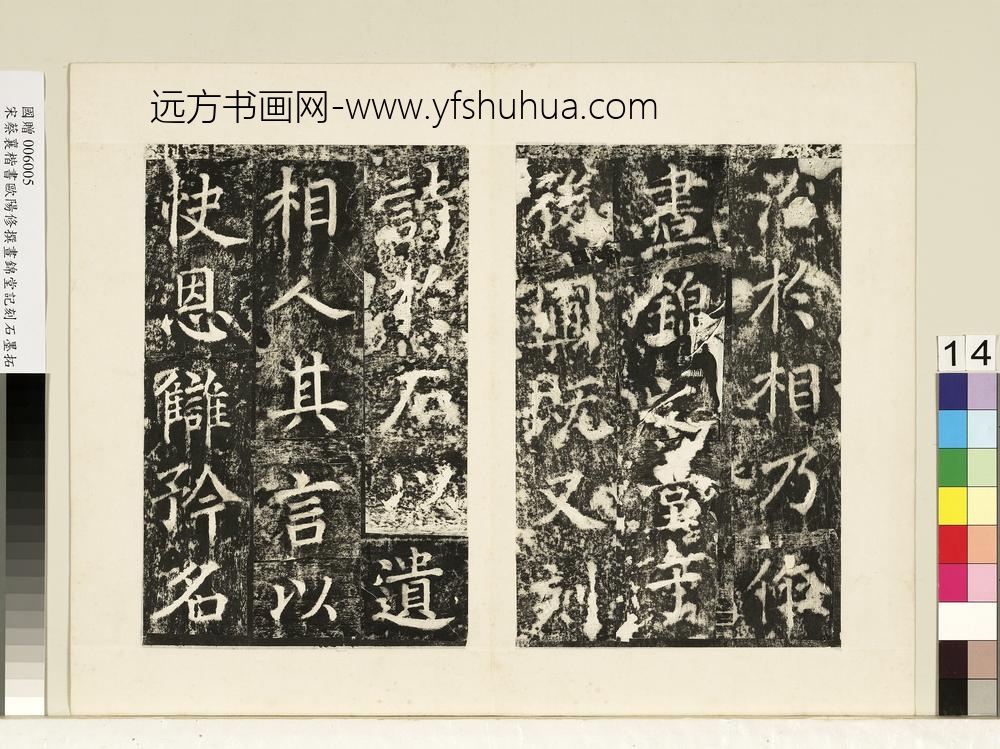 远方书画网-www.yfshuhua.com
國贈006005
宋蔡襄楷書歐陽修撰晝錦堂記刻石墨拓
14
治於相乃作
晝錦之堂于
後圃既又刻
詩於石以遺
相人其言以
快恩讎矜名